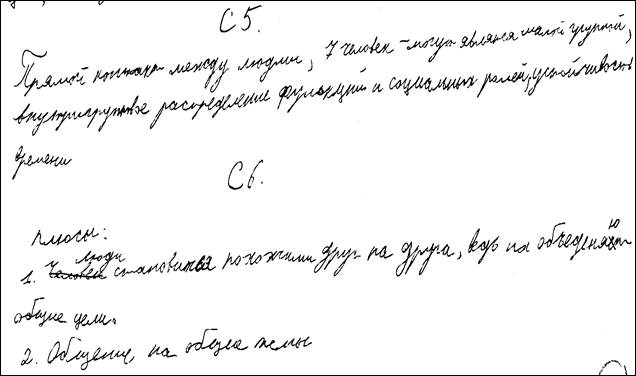 С5.
Прямой контакт между людми, 7 человек – могут являтся малой групой,
внутригруповое распределение функций и социальных ролей, устойчивость
времени
С6.
плюсы:
люди
1. Человек становится похожими друг на друга, ведь их объеденяют
общие цели.
2. Общение на общие темы